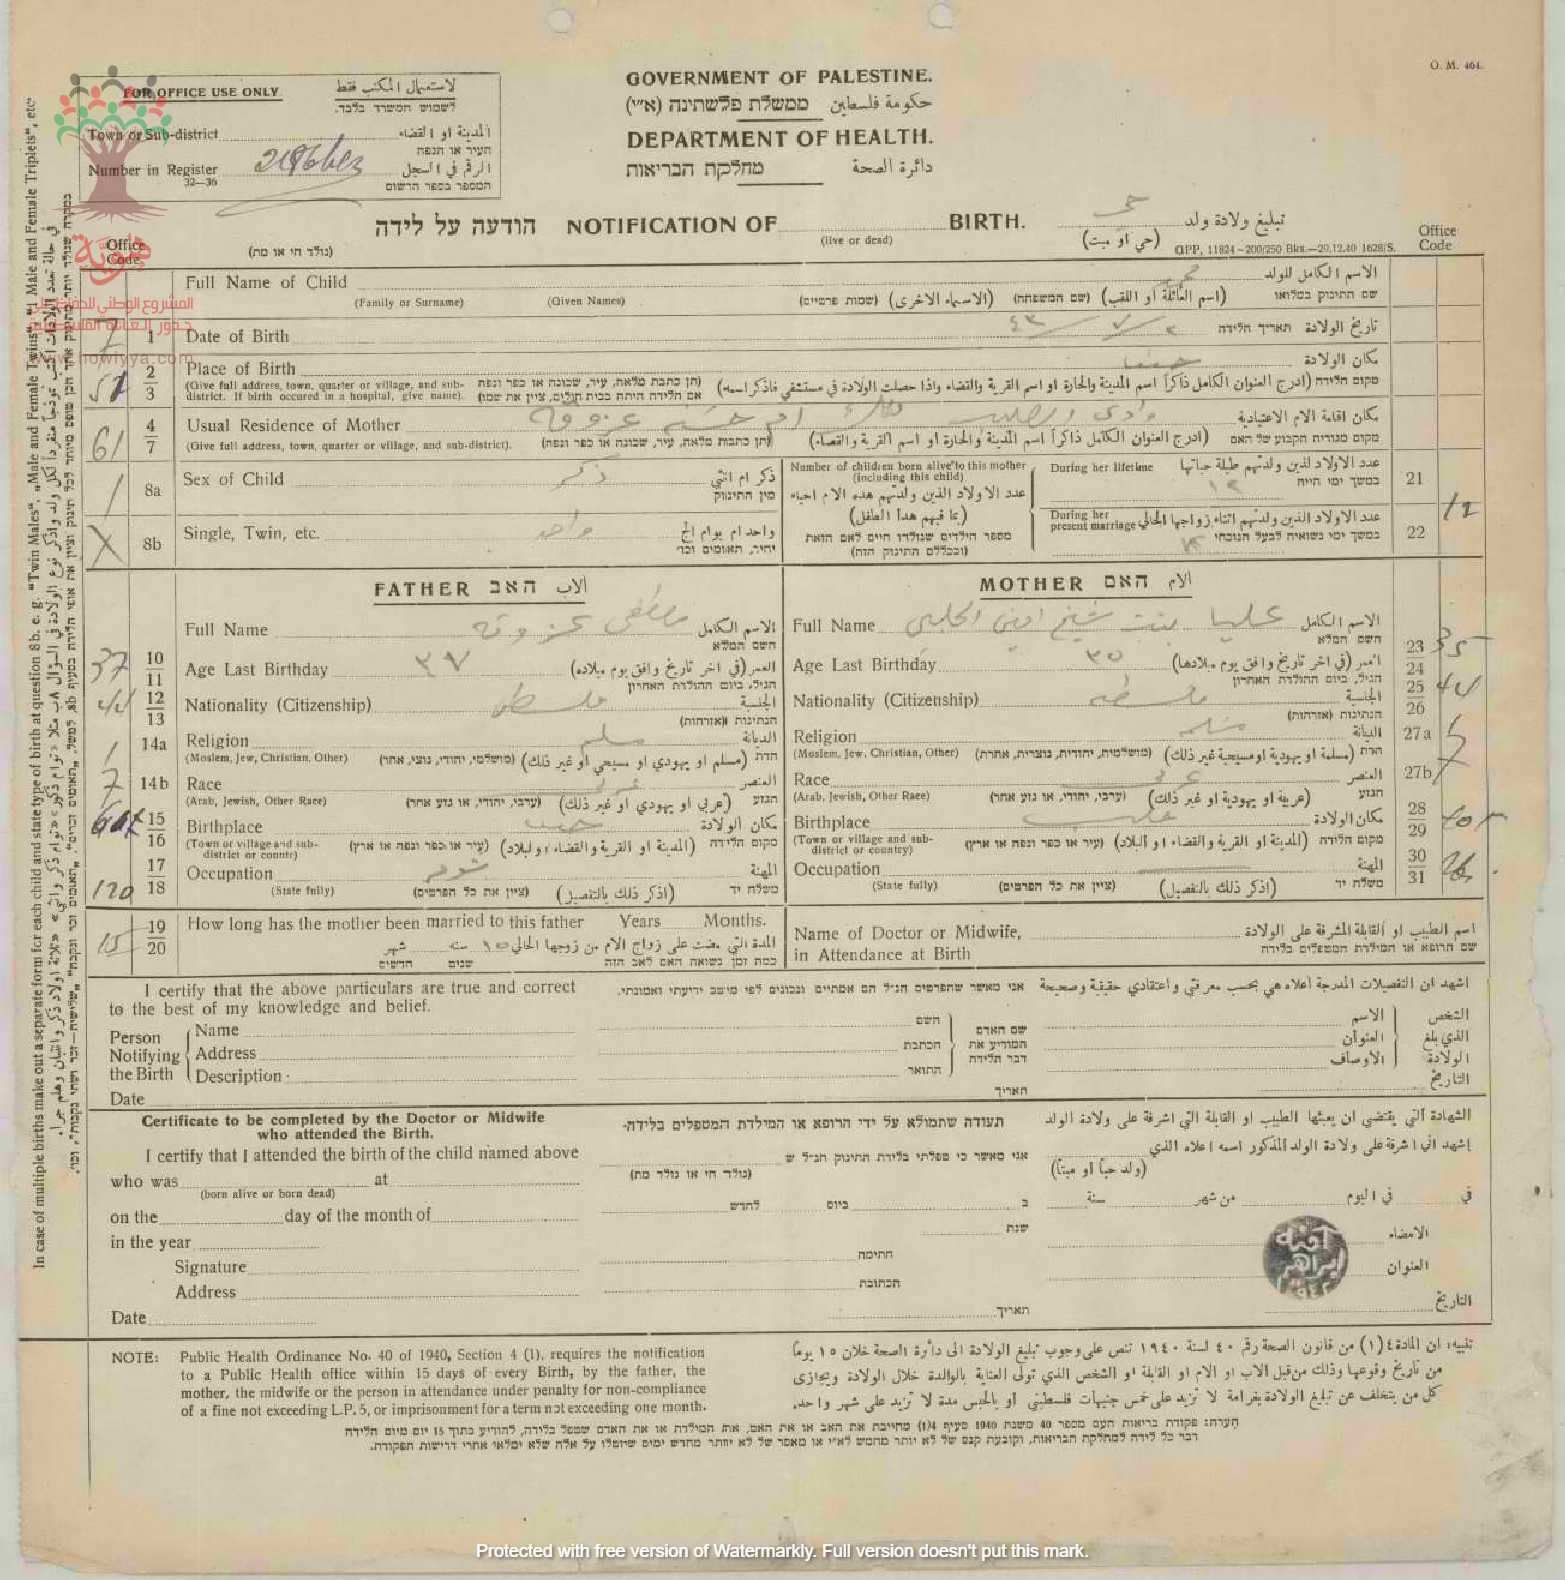 O. M. 404.
FOR OFFICE USE ONLY لاستعمال المكتب فقط
לשמוש המשרד בלבד.
Town or Sub-district المدينة او القضاء
העיר או הנפה
Number in Register الرقم في السجل
32—36 המספר בספר הרשום
GOVERNMENT OF PALESTINE.
ממשלת פלשתינה (א״י) حكومة فلسطين
DEPARTMENT OF HEALTH.
מחלקת הבריאות دائرة الصحة
הודעה על לידה NOTIFICATION OF BIRTH. تبليغ ولادة ولد حي
(נולד חי או מת) (live or dead) (حي او ميت) GPP. 11824—200/250 Bks.—20.12.40 1628/S.
Office Code
Office Code
هوية
المشروع الوطني للحفاظ على
جذور العائلة الفلسطينية
www.howiyya.com
Full Name of Child الاسم الكامل للولد
(Family or Surname) (Given Names) (שמות פרטיים) (الاسماء الاخرى) (שם המשפחה) (اسم العائلة او اللقب) שם התינוק במלואו
7 1 Date of Birth ٢/٧/٤٣ תאריך הלידה تاريخ الولادة
2 3 Place of Birth حيفا مكان الولادة
(Give full address, town, quarter or village, and sub-district. If birth occured in a hospital, give name). (תן כתבת מלאה, עיר, שכונה או כפר ונפה אם הלידה היתה בבית חולים, ציין את שמו) (ادرج العنوان الكامل ذاكراً اسم المدينة والحارة او اسم القرية والقضاء واذا حصلت الولادة في مستشفى فاذكر اسمه) מקום הלידה
61 4 7 Usual Residence of Mother وادي الصليب ملك ام حسن عزوقه مكان اقامة الام الاعتيادية
(Give full address, town, quarter or village, and sub-district). (תן כתבות מלאה, עיר, שכונה או כפר ונפה) (ادرج العنوان الكامل ذاكراً اسم المدينة والحارة او اسم القرية والقضاء) מקום מגורית הקבוע של האם
1 8a Sex of Child ذكر ذكر ام انثى
מין התינוק
X 8b Single, Twin, etc. واحد واحد ام توام الخ
יחיד, תאומים וכו׳
Number of children born alive to this mother (including this child)
عدد الاولاد الذين ولدتهم هذه الام احياء (بما فيهم هذا الطفل)
מספר הילדים שנולדו חיים לאם הזאת (ובכללם התינוק הזה)
During her lifetime عدد الاولاد الذين ولدتهم طيلة حياتها 21
במשך ימי חייה ١٢
During her present marriage عدد الاولاد الذين ولدتهم اثناء زواجها الحالي 22 12
במשך ימי נשואיה לבעל הנוכחי
FATHER האב الاب
Full Name مصطفى عزوقه الاسم الكامل
השם המלא
37 10 11 Age Last Birthday ٣٧ العمر (في اخر تاريخ وافق يوم ميلاده)
הגיל, ביום ההולדת האחרון
44 12 13 Nationality (Citizenship) الجنسية
הנתינות (אזרחות)
1 14a Religion مسلم الديانة
(Moslem, Jew, Christian, Other) (מושלמי, יהודי, נוצי, אחר) (مسلم او يهودي او مسيحي او غير ذلك) הדת
7 14b Race عربي العنصر
(Arab, Jewish, Other Race) (ערבי, יהודי, או גזע אחר) (عربي او يهودي او غير ذلك) הגזע
15 16 Birthplace حيفا مكان الولادة
(Town or village and sub-district or country) (עיר או כפר ונפה או ארץ) (المدينة او القرية والقضاء او البلاد) מקום הלידה
120 17 18 Occupation المهنة
(State fully) (ציין את כל הפרטים) (اذكر ذلك بالتفصيل) משלח יד
MOTHER האם الام
Full Name عليا بنت شيخ امين الحلبي الاسم الكامل
השם המלא
Age Last Birthday ٣٥ العمر (في اخر تاريخ وافق يوم ميلادها) 23 24 35
הגיל, ביום ההולדת האחרון
Nationality (Citizenship) الجنسية 25 26 44
הנתינות (אזרחות)
Religion مسلمه الديانة 27a
(Moslem, Jew, Christian, Other) (מושלמית, יהודית, נוצרית, אחרת) (مسلمة او يهودية او مسيحية غير ذلك) הדת
Race عربي العنصر 27b 7
(Arab, Jewish, Other Race) (ערבי, יהודי, או גזע אחר) (عربية او يهودية او غير ذلك) הגזע
Birthplace حلب مكان الولادة 28 29
(Town or village and sub-district or country) (עיר או כפר ונפה או ארץ) (المدينة او القرية والقضاء او البلاد) מקום הלידה
Occupation المهنة 30 31
(State fully) (ציין את כל הפרטים) (اذكر ذلك بالتفصيل) משלח יד
15 19 20 How long has the mother been married to this father Years Months.
المدة التي مضت على زواج الام من زوجها الحالي ١٥ سنه شهر
כמה זמן נשואה האם לאב הזה שנים חדשים
Name of Doctor or Midwife, in Attendance at Birth
اسم الطبيب او القابلة المشرفة على الولادة
שם הרופא או המילדת המטפלים בלידה
I certify that the above particulars are true and correct to the best of my knowledge and belief.
אני מאשר שהפרטים הנ״ל הם אמתיים ונכונים לפי מיטב ידיעתי ואמונתי.
اشهد ان التفصيلات المدرجة أعلاه هي بحسب معرفتي واعتقادي حقيقية وصحيحة
Person Notifying the Birth Name השם שם האדם المودיע את דבר הלידה الاسم الشخص الذي بلغ الولادة
Address הכתבת العنوان
Description התואר الاوصاف
Date תאריך التاريخ
Certificate to be completed by the Doctor or Midwife who attended the Birth.
תעודה שתמולא על ידי הרופא או המילדת המטפלים בלידה.
الشهادة التي يقتضي ان يعبئها الطبيب او القابلة التي اشرفة على ولادة الولد
I certify that I attended the birth of the child named above
אני מאשר כי טפלתי בלידת התינוק הנ״ל ש
اشهد اني اشرفة على ولادة الولد المذكور اسمه اعلاه الذي
who was at (נולד חי או נולד מת) (ولد حياً او ميتاً)
(born alive or born dead)
on the day of the month of לחדש ביום ב سنة من شهر في اليوم في
in the year שנת
Signature חתימה الامضاء
Address הכתובת العنوان
Date תאריך التاريخ
امنه ابراهيم
NOTE: Public Health Ordinance No. 40 of 1940, Section 4 (1), requires the notification
to a Public Health office within 15 days of every Birth, by the father, the
mother, the midwife or the person in attendance under penalty for non-compliance
of a fine not exceeding L.P. 5, or imprisonment for a term not exceeding one month.
تنبيه: ان المادة ٤(١) من قانون الصحة رقم ٤٠ لسنة ١٩٤٠ تنص على وجوب تبليغ الولادة الى دائرة الصحة خلال ١٥ يوماً
من تاريخ وقوعها وذلك من قبل الاب او الام او القابلة او الشخص الذي تولى العناية بالوالدة خلال الولادة ويجازى
كل من يتخلف عن تبليغ الولادة بغرامة لا تزيد على خمس جنيهات فلسطيني او بالحبس مدة لا تزيد على شهر واحد.
הערה: פקודת בריאות העם מספר 40 משנת 1940 סעיף 4(1) מחייבת את האב או את האם, את המילדת או את האדם שטפל בלידה, להודיע בתוך 15 יום מיום הלידה
דבר כל לידה למחלקת הבריאות, וקובעת קנס של לא יותר מחמש לא״י או מאסר של לא יותר מחדש ימים שיוטלו על אלה שלא ימלאו אחרי דרישות הפקודה.
In case of multiple births make out a separate form for each child and state type of birth at question 8b. e. g. "Twin Males", „Male and Female Twins", "1 Male and Female Triplets", etc.
Protected with free version of Watermarkly. Full version doesn't put this mark.